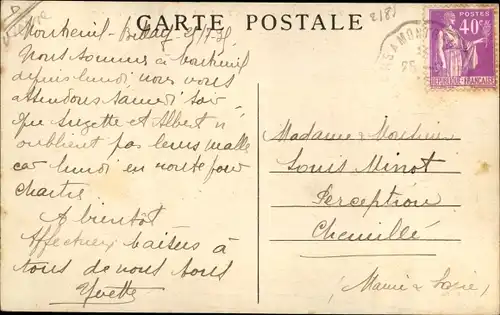 CARTE POSTALE
Montreuil-Bellay
Nous sommes à Montreuil
depuis lundi nous vous
attendons Samedi soir
que Suzette et Albert n'
oublient pas leurs malle
car lundi en route pour
Chartre
A bientôt
Affectueux baisers à
tous de nous tous
Yvette
POSTES
40c
REPUBLIQUE FRANÇAISE
Madame & Monsieur
Louis Minot
Perception
Chemillé
(Maine & Loire)